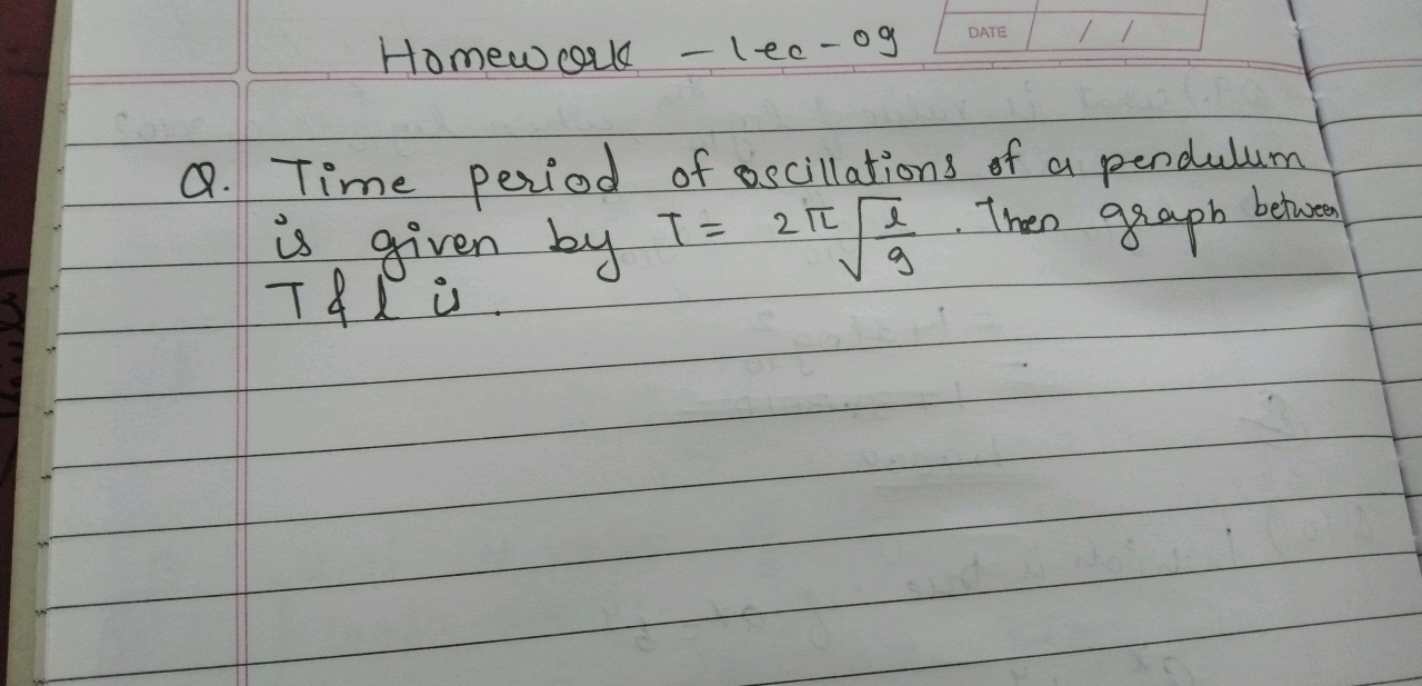 Homework - lec-09
DATE / /
Q. Time period of oscillations of a pendulum
is given by T = 2π√(l/g). Then graph between
T & l is.